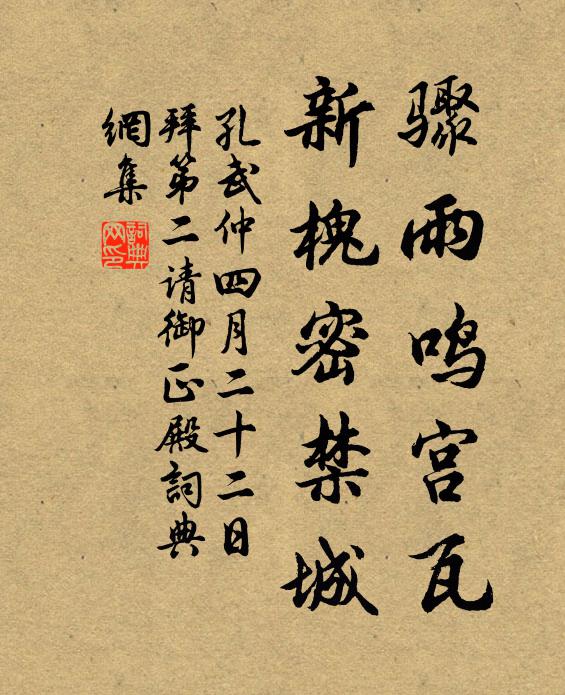 骤雨鸣宫瓦
新槐密禁城
孔武仲四月二十二日
拜第二请御正殿詞典
網集
詞典网印